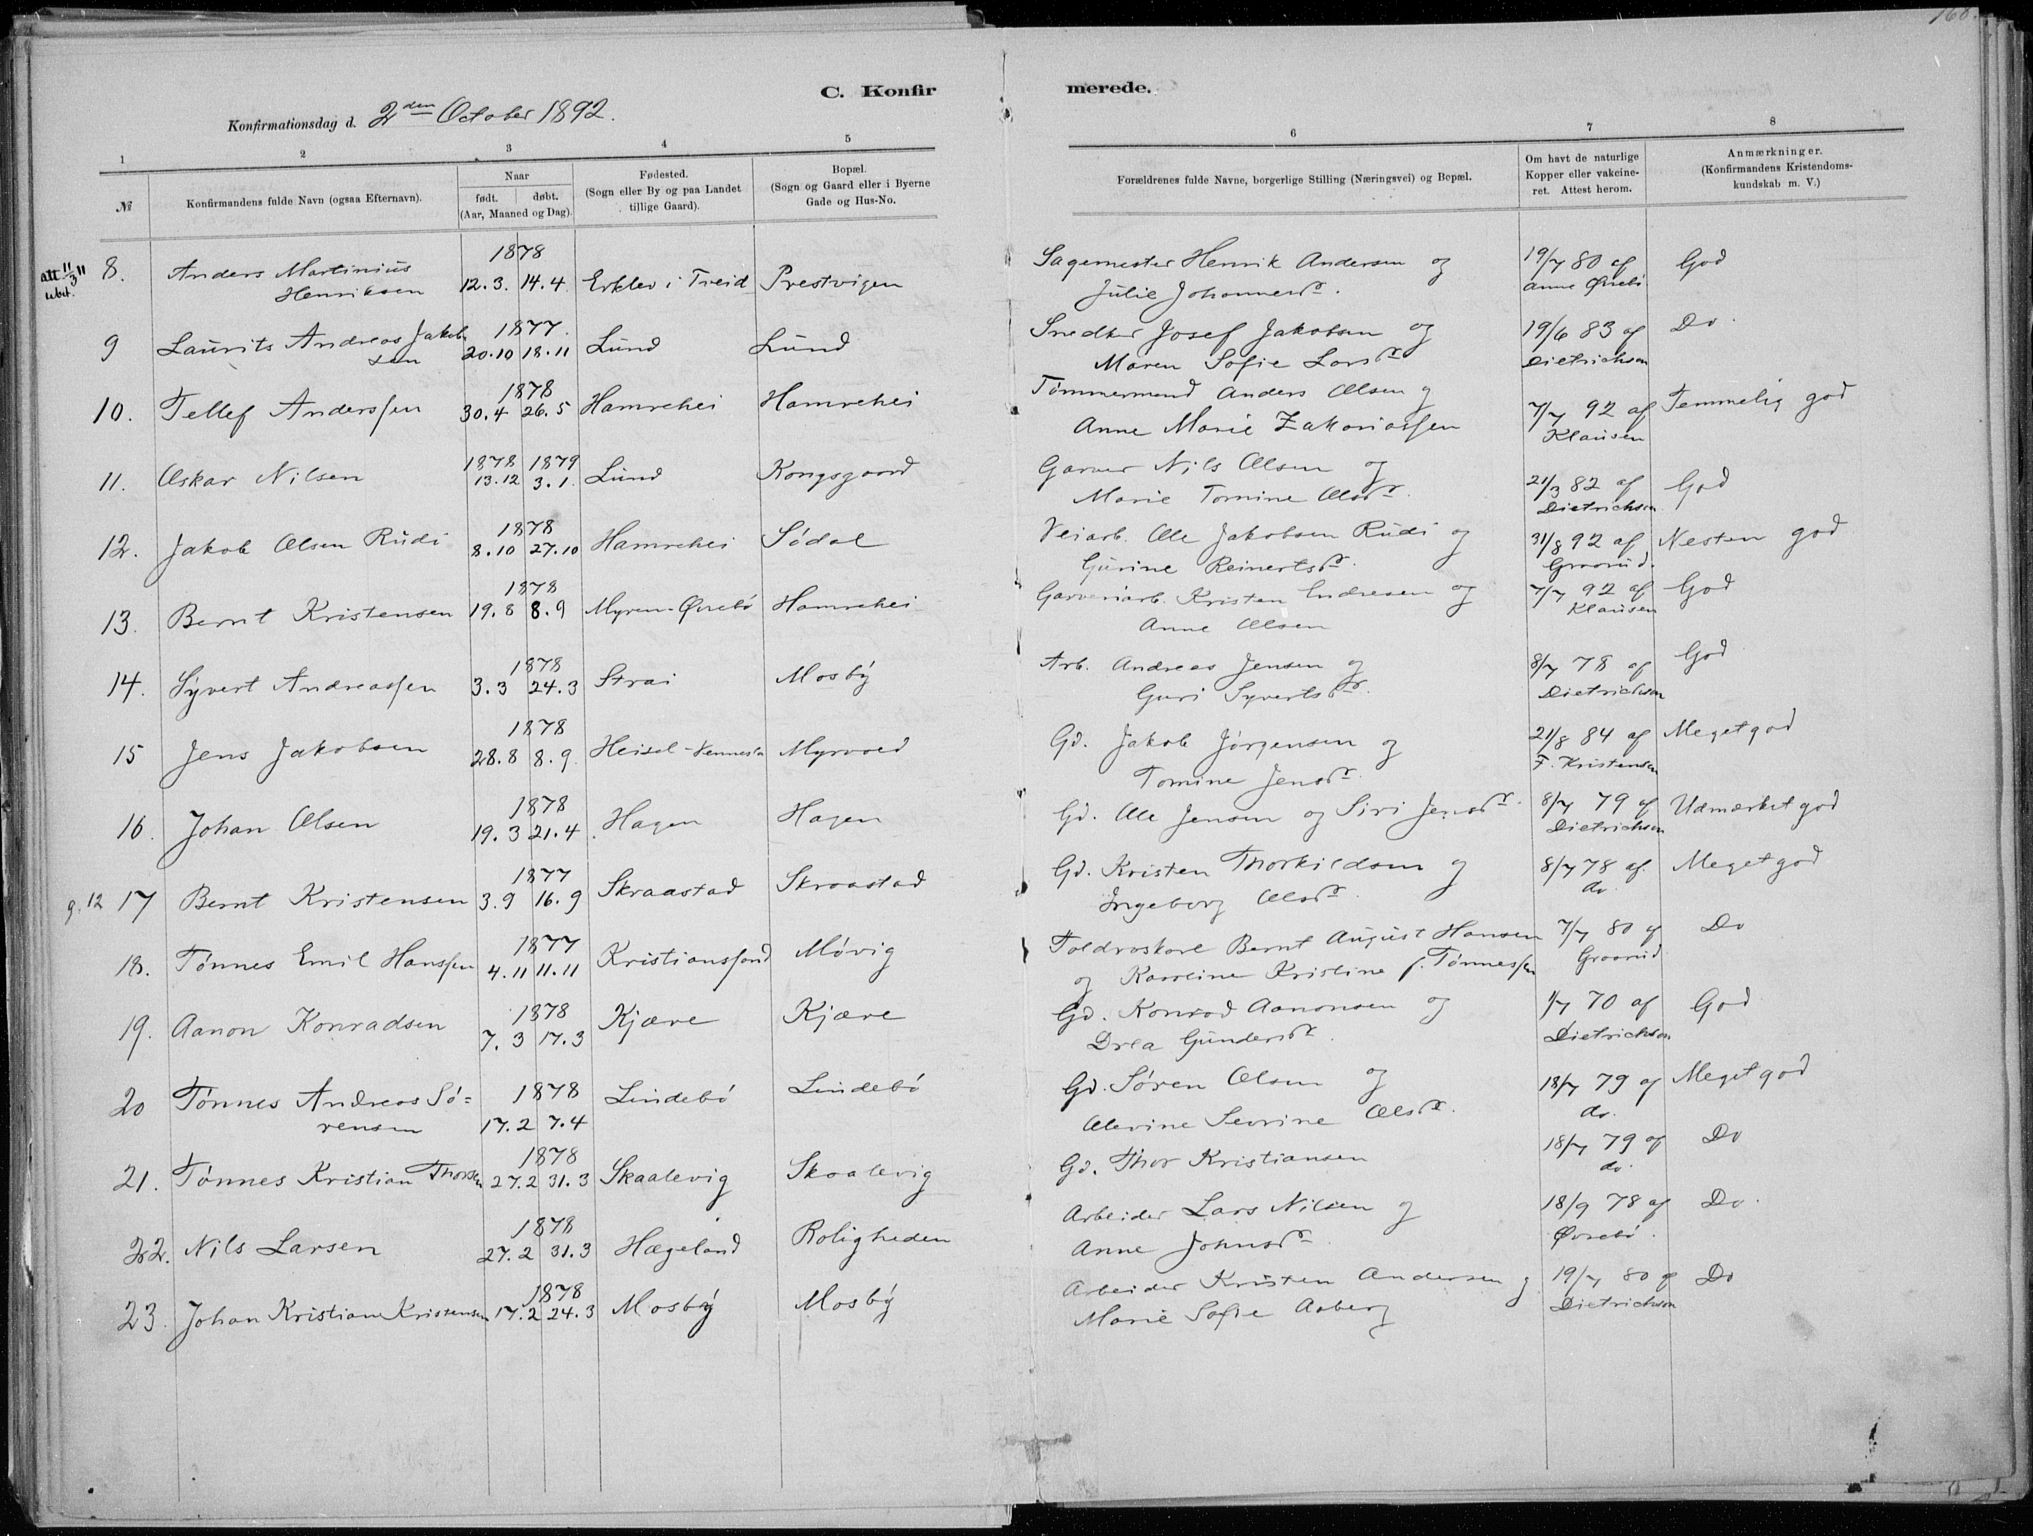 168.
C. Konfirmerede.
Konfirmationsdag d. 2den October 1892.
1 2 3 4 5 6 7 8
№
Konfirmandens fulde Navn (ogsaa Efternavn).
Naar
født. døbt.
(Aar, Maaned og Dag).
Fødested.
(Sogn eller By og paa Landet
tillige Gaard).
Bopæl.
(Sogn og Gaard eller i Byerne
Gade og Hus-No.
Forældrenes fulde Navne, borgerlige Stilling (Næringsvei) og Bopæl.
Om havt de naturlige
Kopper eller vakcine-
ret. Attest herom.
Anmærkninger.
(Konfirmandens Kristendoms-
kundskab m. V.)
att 11/3 11
8. Anders Martinius 1878 Sagemester Henrik Andersen og 19/7 80 af God
Henriksen 12.3. 14.4 i Treid Prestvigen Julie Johannesdr. Anne Øvrebø
9 Laurits Andreas Jakob- 1877 Snedker Josef Jakobsen og 19/6 83 af Do.
sen 20.10 18.11 Lund Lund Maren Sofie Larsdr Dietrichson
10. Tellef Anderssen 1878 Tømmermand Anders Olsen og 7/7 92 af Temmelig god
30.4 26.5 Hamrehei Hamrehei Anne Marie Zakariassen Klausen
11. Oskar Nilsen 1878 1879 Lund Kongsgaard Garver Nils Olsen og 21/3 82 af God
13.12 3.1. Marie Tomine Olsdr. Dietrichson
12. Jakob Olsen Rudi 1878 Veiarb. Ole Jakobsen Rudi og 31/8 92 af Nesten god
8.10 27.10 Hamrehei Sødal Gurine Reinertsdr. Graarud.
13. Bernt Kristensen 1878 Garveriarb. Kristen Endresen og 7/7 92 af God
19.8 8.9 Myren-Øvrebø Hamrehei Anne Olsen Klausen
14. Syvert Andreassen 1878 Arb. Andreas Jensen og 8/7 78 af God
3.3 24.3 Strai Mosby Guri Syvertsdr. Dietrichson
15 Jens Jakobsen 1878 Gd. Jakob Jørgensen og 21/8 84 af Meget god
28.8 8.9. Heisel-Vennesla Myrvold Tomine Jensdr. F. Kristensen
16. Johan Olsen 1878 Gd. Ole Jensen og Siri Jensdr. 8/7 79 af Udmærket god
19.3 21.4. Hagen Hagen Dietrichson
g. 12 17 Bernt Kristensen 1877 Gd. Kristen Thorkildsen og 8/7 78 af. Meget god
3.9 16.9 Skraastad Skraastad Ingeborg Olsdr. do.
18. Tønnes Emil Hanssen 1877 Toldroskarl Bernt August Hansen 7/7 80 af Do
4.11 11.11 Kristianssand Møvig og Karoline Kristine f. Tønnessen Graarud
19. Aanon Konradsen 1878 Gd. Konrad Aanonsen og 1/7 70 af God
7.3 17.3 Kjære Kjære Drea Gundersdr. Dietrichson
20 Tønnes Andreas Sø- 1878 Gd. Søren Olsen og 18/7 79 af Meget god
rensen 17.2 7.4 Lindebø Lindebø Olevine Sevrine Olsdr. do.
21. Tønnes Kristian Thorsen 1878 Gd. Thor Kristiansen 18/7 79 af Do
27.2 31.3 Skaalevig Skaalevig do.
22. Nils Larsen 1878 Arbeider Lars Nilsen og 18/9 78 af Do.
27.2 31.3 Hægeland Roligheden Anne Johnsdr. Øvrebø.
23. Johan Kristian Kristensen 1878 Arbeider Kristen Andersen og 19/7 80 af Do
17.2 24.3 Mosby Mosby Marie Sofie Aaberg Dietrichson